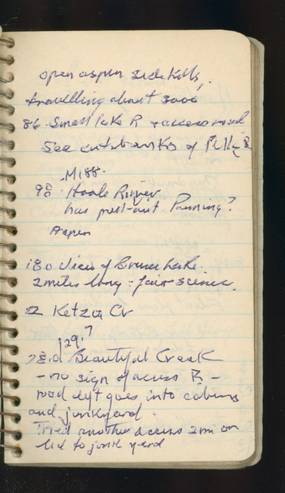 open aspen sidehills,
travelling about 3000
86 Small lake R + access road
See cutbanks of Pelly R
M188
98 Hoole River
has pest-out Panning?
Aspen
180 View of Bruce Lake.
2 miles long - fair scenic.
Ketza Cr
?
Beautiful Creek
- no sign of access R -
road left goes into cabins
and junkyard.
Tried another access 2 mi on
led to junk yard